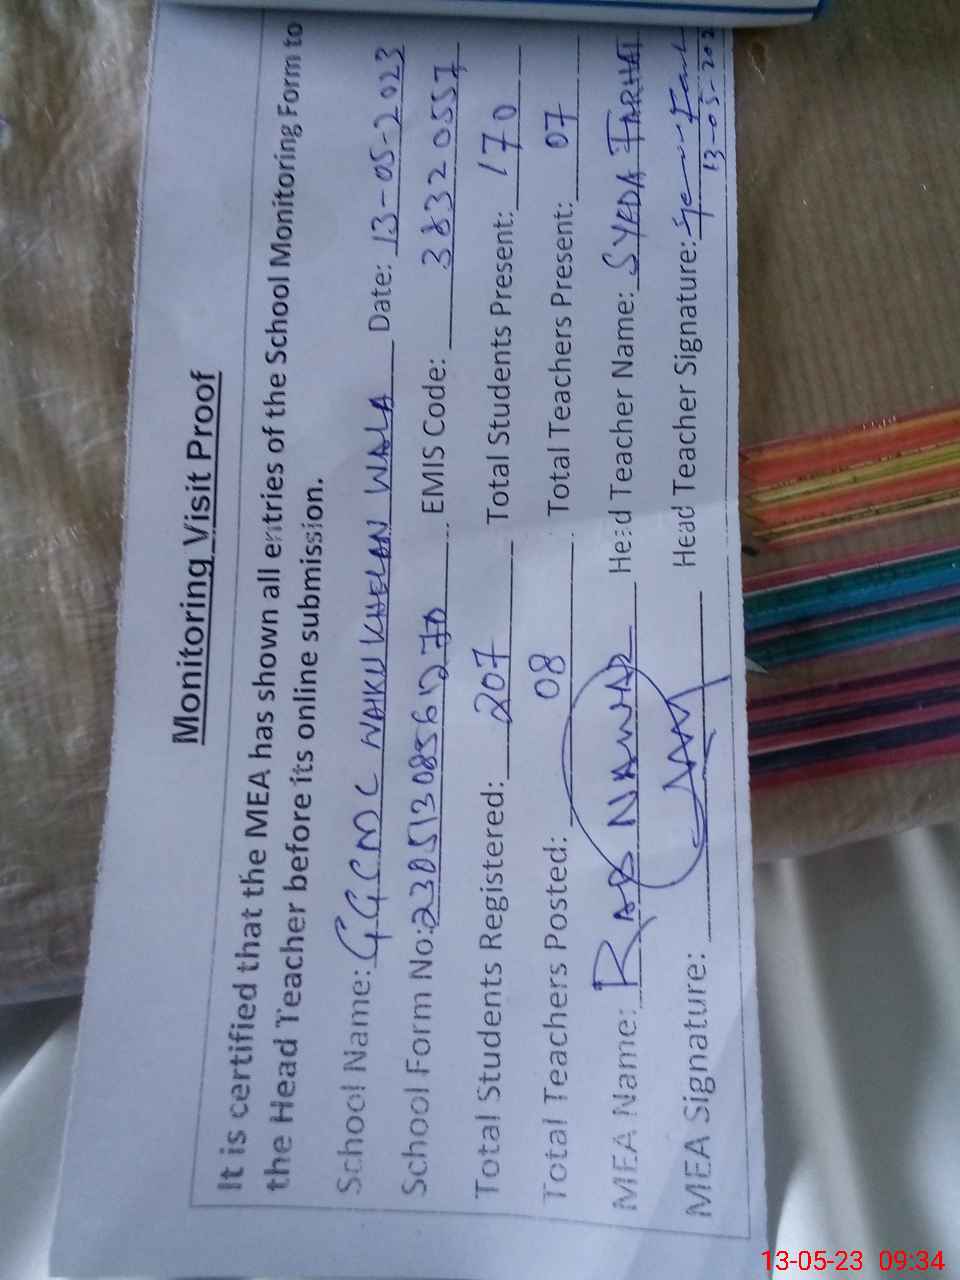 Monitoring Visit Proof
It is certified that the MEA has shown all entries of the School Monitoring Form to
the Head Teacher before its online submission.
School Name: GGCMC NAIKU KHELAN WALA Date: 13-05-2023
School Form No: EMIS Code: 38320557
Total Students Registered: 207 Total Students Present: 170
Total Teachers Posted: 08 Total Teachers Present: 07
MEA Name: RAB NAWAR Head Teacher Name: SYEDA FARHAT
MEA Signature: Head Teacher Signature:
13-05-202
13-05-23 09:34